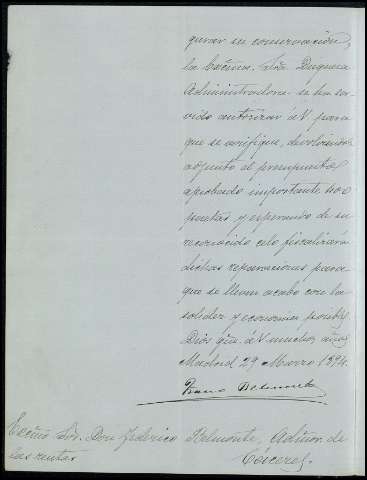 gurar su conservación,
la Excma. Sra. Duquesa
Administradora se ha ser-
vido autorizar á V. para
que se verifique, devolviendo
adjunto el presupuesto
aprobado importante
pesetas y esperando de su
reconocido celo fiscalizará
dichas reparaciones para
que se lleven acabo con la
solidez y economia posible
Dios gue. á V. muchos años
Madrid 29 Marzo 1894.
Belmonte
Excmo Sor. Don Federico Belmonte, Admor. de
las rentas Cáceres.